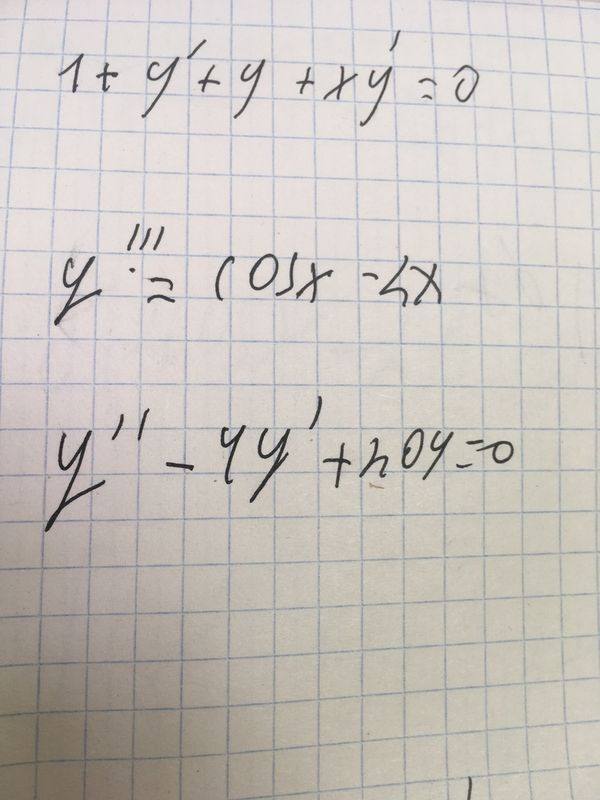 1 + y' + y + xy' = 0
y''' = cosx - 2x
y'' - 4y' + 20y = 0